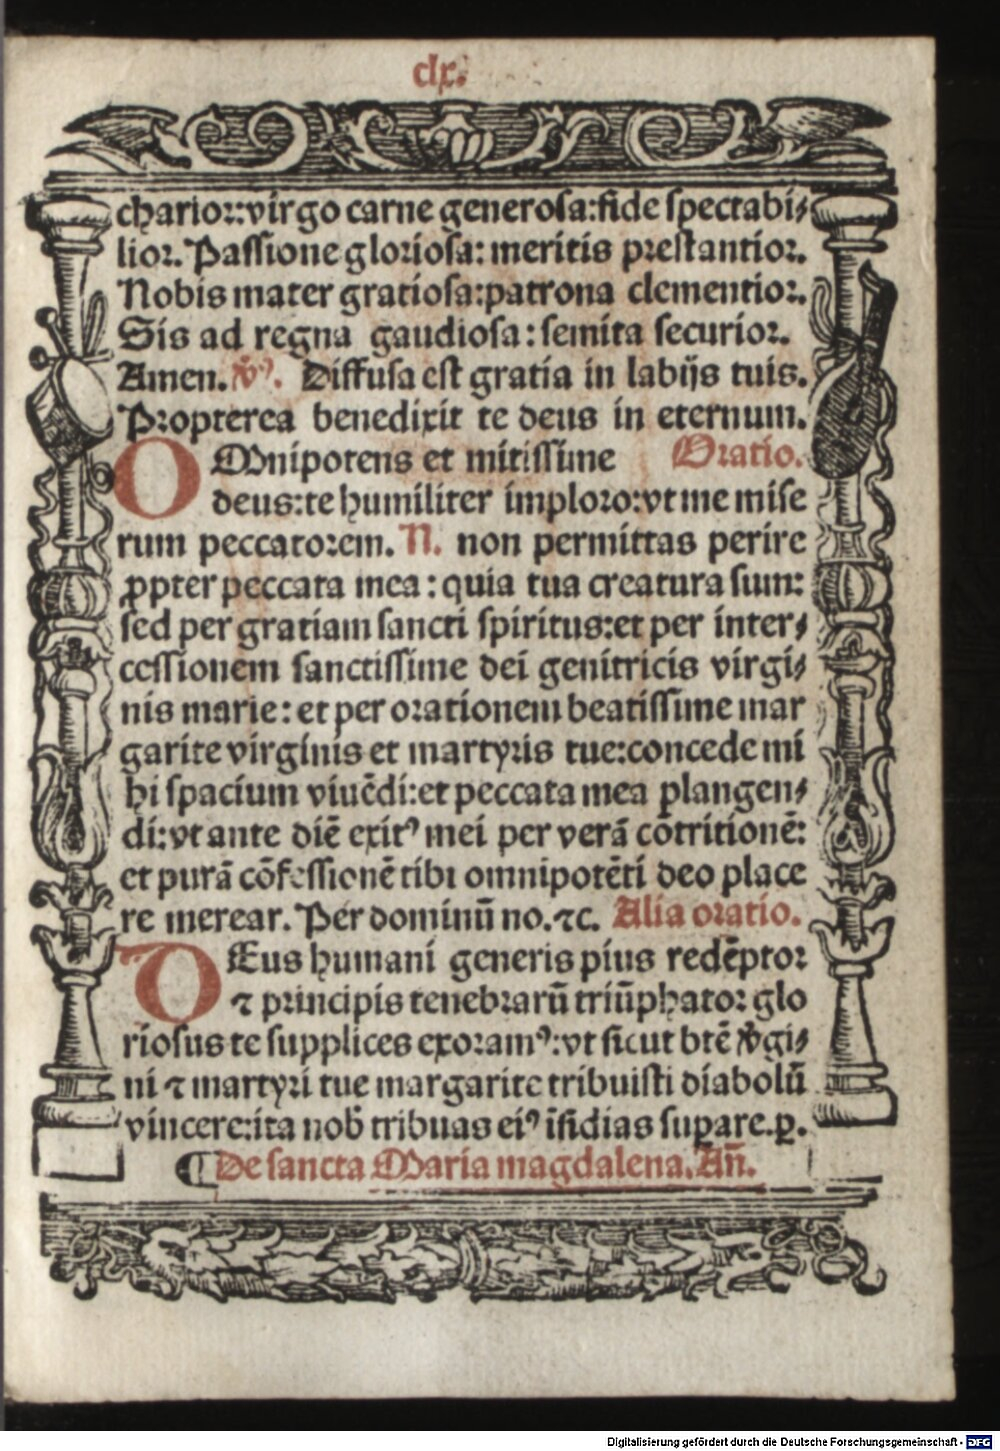 clx.
charior:virgo carne generosa:fide spectabi⸗
lior. Passione gloriosa: meritis prestantior.
Nobis mater gratiosa:patrona clementior.
Sis ad regna gaudiosa: semita securior.
Amen. v̾ꝰ. Diffusa est gratia in labijs tuis.
Propterea benedixit te deus in eternum.
OMnipotens et mitissime Oratio.
deus:te humiliter imploro:vt me mise
rum peccatorem. N. non permittas perire
ꝓpter peccata mea: quia tua creatura sum:
sed per gratiam sancti spiritus:et per inter⸗
cessionem sanctissime dei genitricis virgi⸗
nis marie: et per orationem beatissime mar
garite virginis et martyris tue:concede mi
hi spacium viuēdi:et peccata mea plangen⸗
di:vt ante diē exitꝰ mei per verā cōtritionē:
et purā cōfessionē tibi omnipotēti deo place
re merear. Per dominū no.⁊c. Alia oratio.
DEus humani generis pius redēptor
⁊ principis tenebrarū triūphator glo
riosus te supplices exoramꝰ:vt sicut btē v̾gi⸗
ni ⁊ martyri tue margarite tribuisti diabolū
vincere:ita nob̄ tribuas eiꝰ īsidias suꝑare.ꝑ.
De sancta Maria magdalena. Añ.
Digitalisierung gefördert durch die Deutsche Forschungsgemeinschaft - DFG